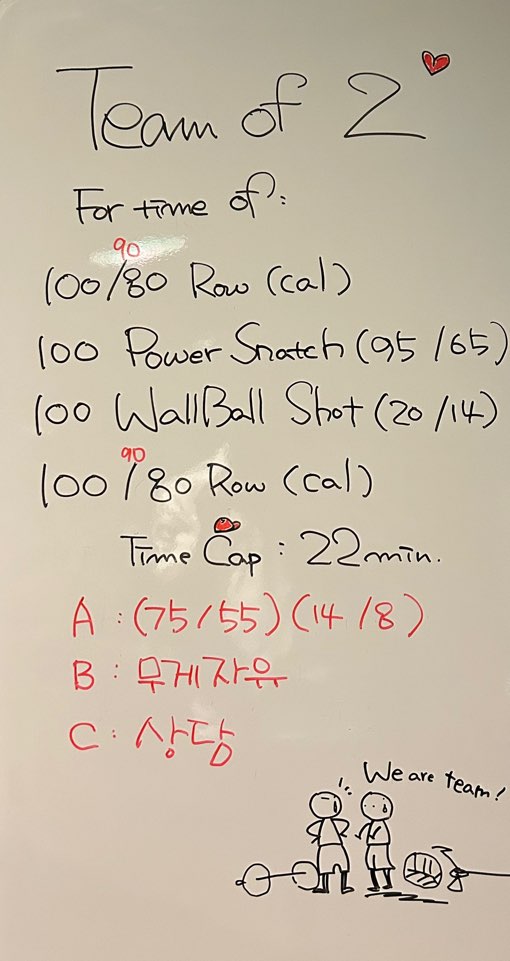 Team of 2
For time of:
90
100/80 Row (cal)
100 Power Snatch (95/65)
100 WallBall Shot (20/14)
90
100/80 Row (cal)
Time Cap : 22min.
A : (75/55)(14/8)
B : 무게자유
C : 상담
We are team!